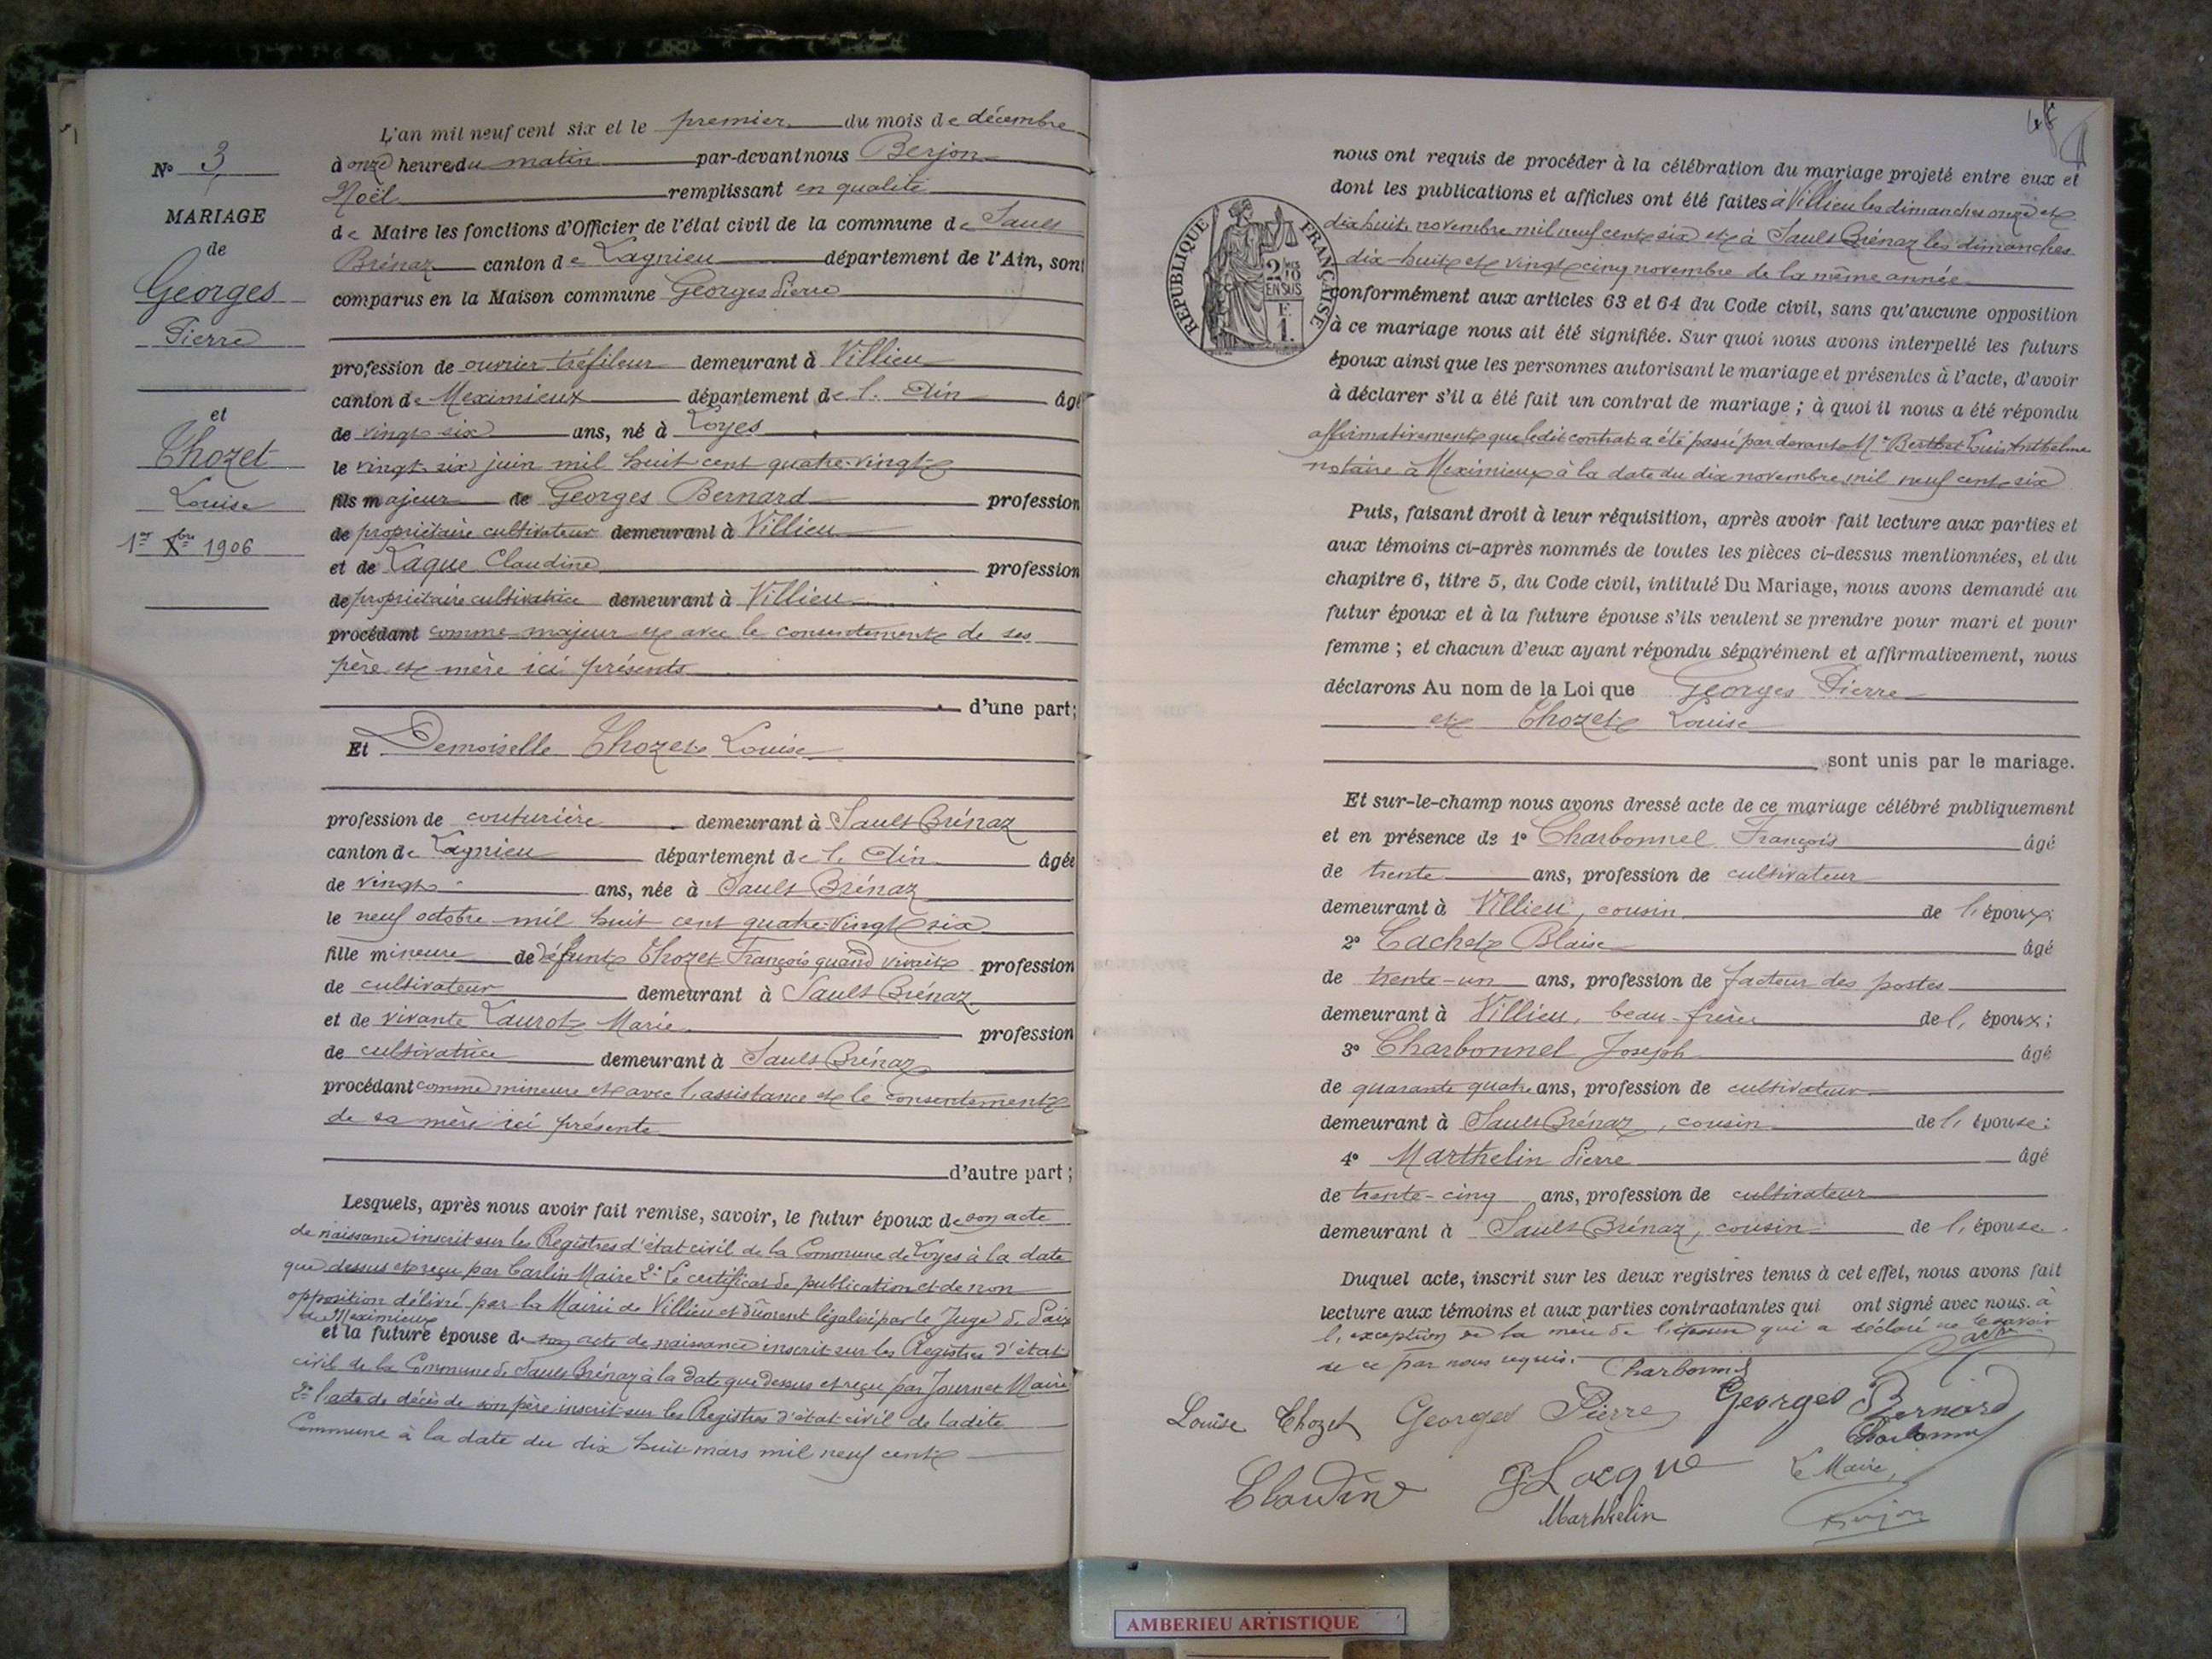 L'an mil neuf cent six et le premier du mois de décembre
à onze heures du matin par-devant nous Berjon
Noël remplissant en qualité
de Maire les fonctions d'Officier de l'état civil de la commune de Sault
Brénaz canton de Lagnieu département de l'Ain, sont
comparus en la Maison commune Georges Pierre
profession de ouvrier tréfileur demeurant à Villieu
canton de Meximieux département de l'Ain âgé
de vingt six ans, né à Loyes
le vingt-six juin mil huit cent quatre-vingt
fils majeur de Georges Bernard profession
de propriétaire cultivateur demeurant à Villieu
et de Laque Claudine profession
de propriétaire cultivatrice demeurant à Villieu
procédant comme majeur et avec le consentement de ses
père et mère ici présents
d'une part;
Et Demoiselle Thozet Louise
profession de couturière demeurant à Sault Brénaz
canton de Lagnieu département de l'Ain âgée
de vingt ans, née à Sault Brénaz
le neuf octobre mil huit cent quatre-vingt six
fille mineure de défunt Thozet François quand vivait profession
de cultivateur demeurant à Sault Brénaz
et de vivante Laurot Marie profession
de cultivatrice demeurant à Sault Brénaz
procédant comme mineure et avec l'assistance et le consentement
de sa mère ici présente
d'autre part;
Lesquels, après nous avoir fait remise, savoir, le futur époux de son acte
de naissance inscrit sur les Registres d'état civil de la Commune de Loyes à la date
que dessus et reçu par Carlin Maire 2° Le certificat de publication et de non
opposition délivré par la Mairie de Villieu et dûment légalisé par le Juge de Paix
de Meximieux
et la future épouse de son acte de naissance inscrit sur les Registres d'état
civil de la Commune de Sault Brénaz à la date que dessus et reçu par Journet Maire
2° l'acte de décès de son père inscrit sur les Registres d'état civil de ladite
Commune à la date du dix huit mars mil neuf cent
N° 3
MARIAGE
de
Georges
Pierre
et
Thozet
Louise
1er Xbre 1906
nous ont requis de procéder à la célébration du mariage projeté entre eux et
dont les publications et affiches ont été faites à Villieu les dimanches onze et
dix huit novembre mil neuf cent six et à Sault Brénaz les dimanches
dix-huit et vingt cinq novembre de la même année
conformément aux articles 63 et 64 du Code civil, sans qu'aucune opposition
à ce mariage nous ait été signifiée. Sur quoi nous avons interpellé les futurs
époux ainsi que les personnes autorisant le mariage et présentes à l'acte, d'avoir
à déclarer s'il a été fait un contrat de mariage; à quoi il nous a été répondu
affirmativement que ledit contrat a été passé par devant Me Berthet Louis Anthelme
notaire à Meximieux à la date du dix novembre mil neuf cent six
Puis, faisant droit à leur réquisition, après avoir fait lecture aux parties et
aux témoins ci-après nommés de toutes les pièces ci-dessus mentionnées, et du
chapitre 6, titre 5, du Code civil, intitulé Du Mariage, nous avons demandé au
futur époux et à la future épouse s'ils veulent se prendre pour mari et pour
femme; et chacun d'eux ayant répondu séparément et affirmativement, nous
déclarons Au nom de la Loi que Georges Pierre
et Thozet Louise
sont unis par le mariage.
Et sur-le-champ nous avons dressé acte de ce mariage célébré publiquement
et en présence de 1° Charbonnel François âgé
de trente ans, profession de cultivateur
demeurant à Villieu, cousin de l'époux;
2° Cachet Blaise âgé
de trente-un ans, profession de facteur des postes
demeurant à Villieu, beau-frère de l'époux;
3° Charbonnel Joseph âgé
de quarante quatre ans, profession de cultivateur
demeurant à Sault Brénaz, cousin de l'épouse;
4° Marthelin Pierre âgé
de trente-cinq ans, profession de cultivateur
demeurant à Sault Brénaz, cousin de l'épouse.
Duquel acte, inscrit sur les deux registres tenus à cet effet, nous avons fait
lecture aux témoins et aux parties contractantes qui ont signé avec nous. à
l'exception de la mère de l'épouse qui a déclaré ne le savoir
de ce par nous requis.
Charbonnel
Louise Thozet Georges Pierre Georges Bernard
Charbonnel
Claudine Locque Le Maire,
Marthelin Berjon
RÉPUBLIQUE FRANÇAISE
2/10
EN SUS
F.
1.
AMBERIEU ARTISTIQUE